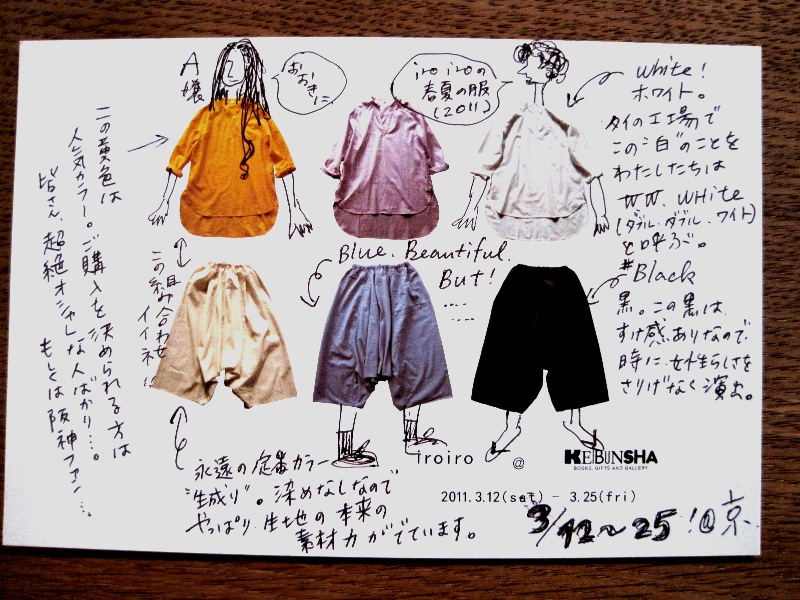 A嬢
おおきに
iro iroの
春夏の服
(2011)
White!
ホワイト。
タイの工場で
この"白"のことを
わたしたちは
WW. WHITE
(ダブル.ダブル.ワイト)
と呼ぶ。
#Black
黒。この黒は、
すけ感ありなので
時に女性らしさを
さりげなく演出。
この黄色は
人気カラー。ご購入を決められる方は
皆さん、超絶オシャレな人ばかり…。
もしくは阪神ファン…。
この組み合わせ
イイネ!!
Blue. Beautiful.
But!
....
....
永遠の定番カラー
"生成り"。染めなしなので
やっぱり生地の本来の
素材力がでています。
iroiro @ KEIBUNSHA
BOOKS, GIFTS AND GALLERY
2011. 3.12(sat) － 3.25(fri)
3/12〜25!@京